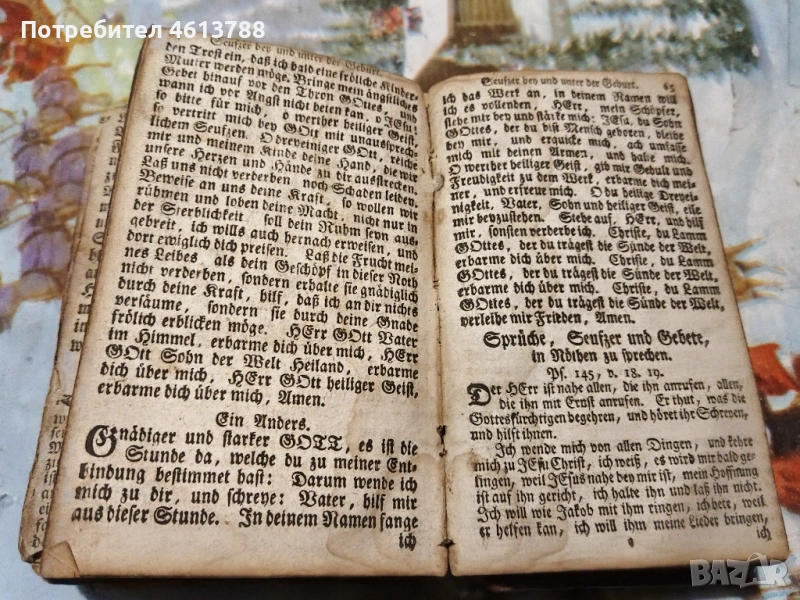 Потребител 4613788
Seufzer bey und unter der Geburt.
den Trost ein, daß ich bald eine fröliche Kinder-
Mutter werden möge. Bringe mein ängstliches
Gebet hinauf vor den Thron GOttes, und
wann ich vor Angst nicht beten kan, o JEsu!
so bitte für mich, o werther heiliger Geist,
so vertritt mich bey GOtt mit unaussprech-
lichem Seufzen. O dreyeiniger GOtt, reiche
mir und meinem Kinde deine Hand, die wir
unsere Herzen und Hände zu dir ausstrecken.
Laß uns nicht verderben noch Schaden leiden.
Beweise an uns deine Kraft, so wollen wir
rühmen und loben deine Macht, nicht nur in
der Sterblichkeit soll dein Ruhm seyn aus-
gebreit, ich wills auch hernach erweisen, und
dort ewiglich dich preisen. Laß die Frucht mei-
nes Leibes, als dein Geschöpf in dieser Noth
nicht verderben, sondern erhalte sie gnädiglich
durch deine Kraft, hilf, daß ich an dir nichts
versäume, sondern sie durch deine Gnade
frölich erblicken möge. HErr GOtt Vater
im Himmel, erbarme dich über mich, HErr
GOtt Sohn der Welt Heiland, erbarme
dich über mich, HErr GOtt heiliger Geist,
erbarme dich über mich, Amen.
Ein Anders.
Gnädiger und starker GOTT, es ist die
Stunde da, welche du zu meiner Ent-
bindung bestimmet hast: Darum wende ich
mich zu dir, und schreye: Vater, hilf mir
aus dieser Stunde. In deinem Namen fange
ich
Seufzer bey und unter der Geburt. 65
ich das Werk an, in deinem Namen will
ich es vollenden, HErr, mein Schöpfer,
stehe mir bey und stärke mich: JEsu, du Sohn
GOttes, der du bist Mensch geboren, bleibe
bey mir, und erquicke mich, ach umfasse
mich mit deinen Armen, und halte mich.
O werther heiliger Geist, gib mir Gedult und
Freudigkeit zu dem Werk, erbarme dich mei-
ner, und erfreue mich. O du heilige Dreyei-
nigkeit, Vater, Sohn und heiliger Geist, eile
mir beyzustehen. Stehe auf, HErr, und hilf
mir, sonsten verderbe ich. Christe, du Lamm
GOttes, der du trägest die Sünde der Welt,
erbarme dich über mich. Christe, du Lamm
GOttes, der du trägest die Sünde der Welt,
erbarme dich über mich. Christe, du Lamm
GOttes, der du trägest die Sünde der Welt,
verleihe mir Frieden, Amen.
Sprüche, Seufzer und Gebete,
in Nöthen zu sprechen.
Ps. 145, v. 18. 19.
Der HErr ist nahe allen, die ihn anrufen, allen,
die ihn mit Ernst anrufen. Er thut, was die
Gottesfürchtigen begehren, und höret ihr Schreyen,
und hilft ihnen.
Ich wende mich von allen Dingen, und kehre
mich zu JEsu Christ, ich weiß, es wird mir bald ge-
lingen, weil JEsus nahe bey mir ist, mein Hoffnung
ist auf ihn gericht, ich halte ihn und laß ihn nicht.
Ich will wie Jakob mit ihm ringen, ich bete, weil
er helfen kan, ich will ihm meine Lieder bringen,
ich
BAZAR